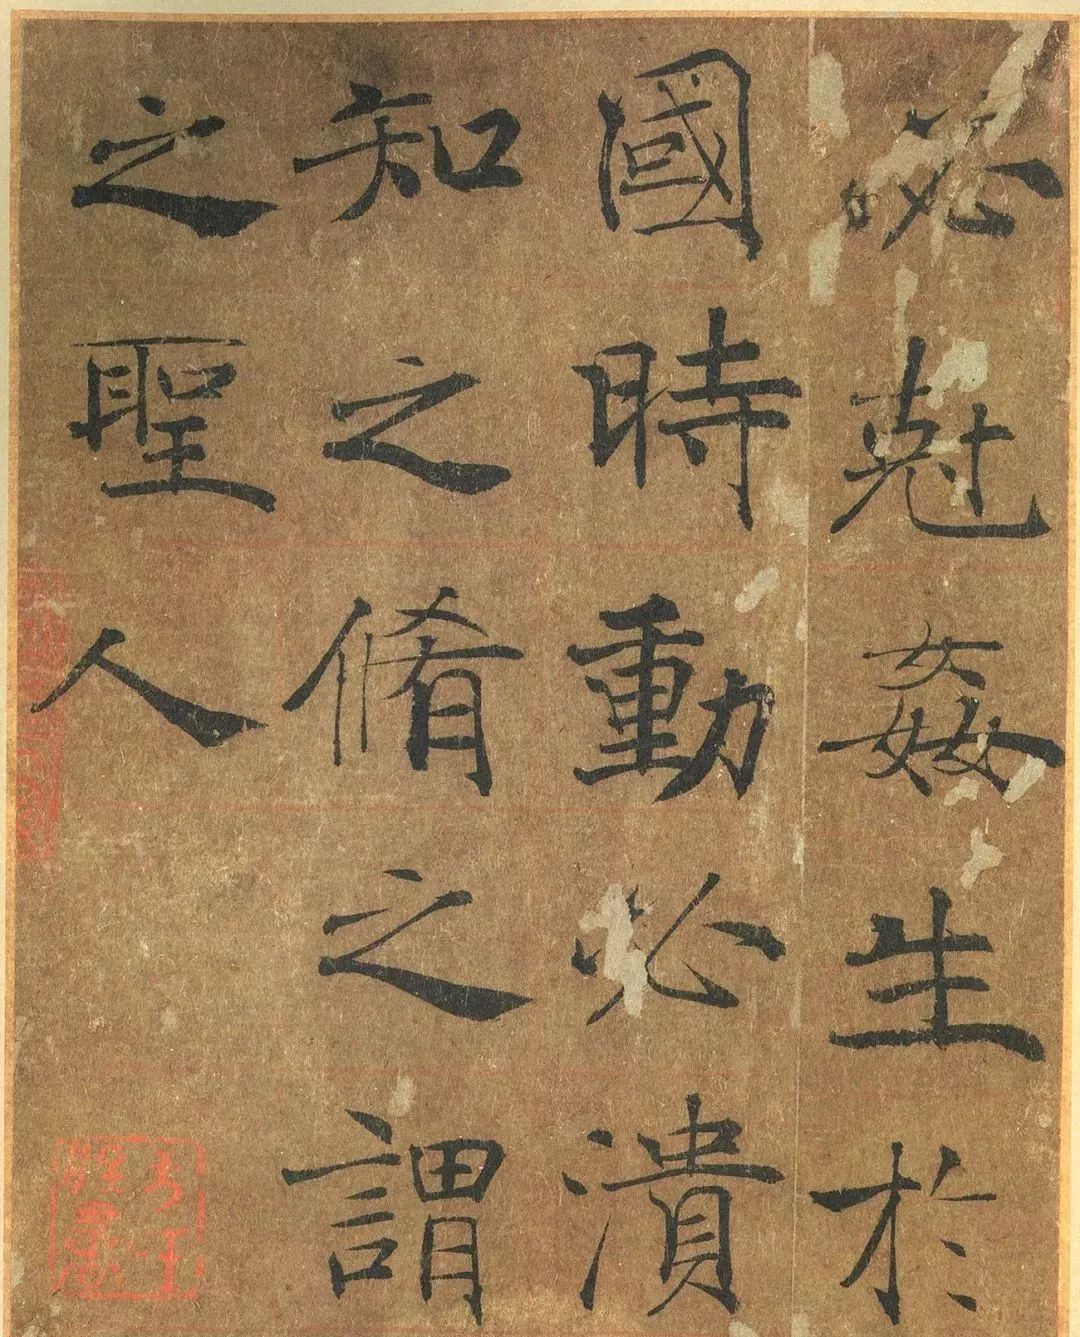 必尅姧生於
國時動必潰
知之脩之謂
之聖人